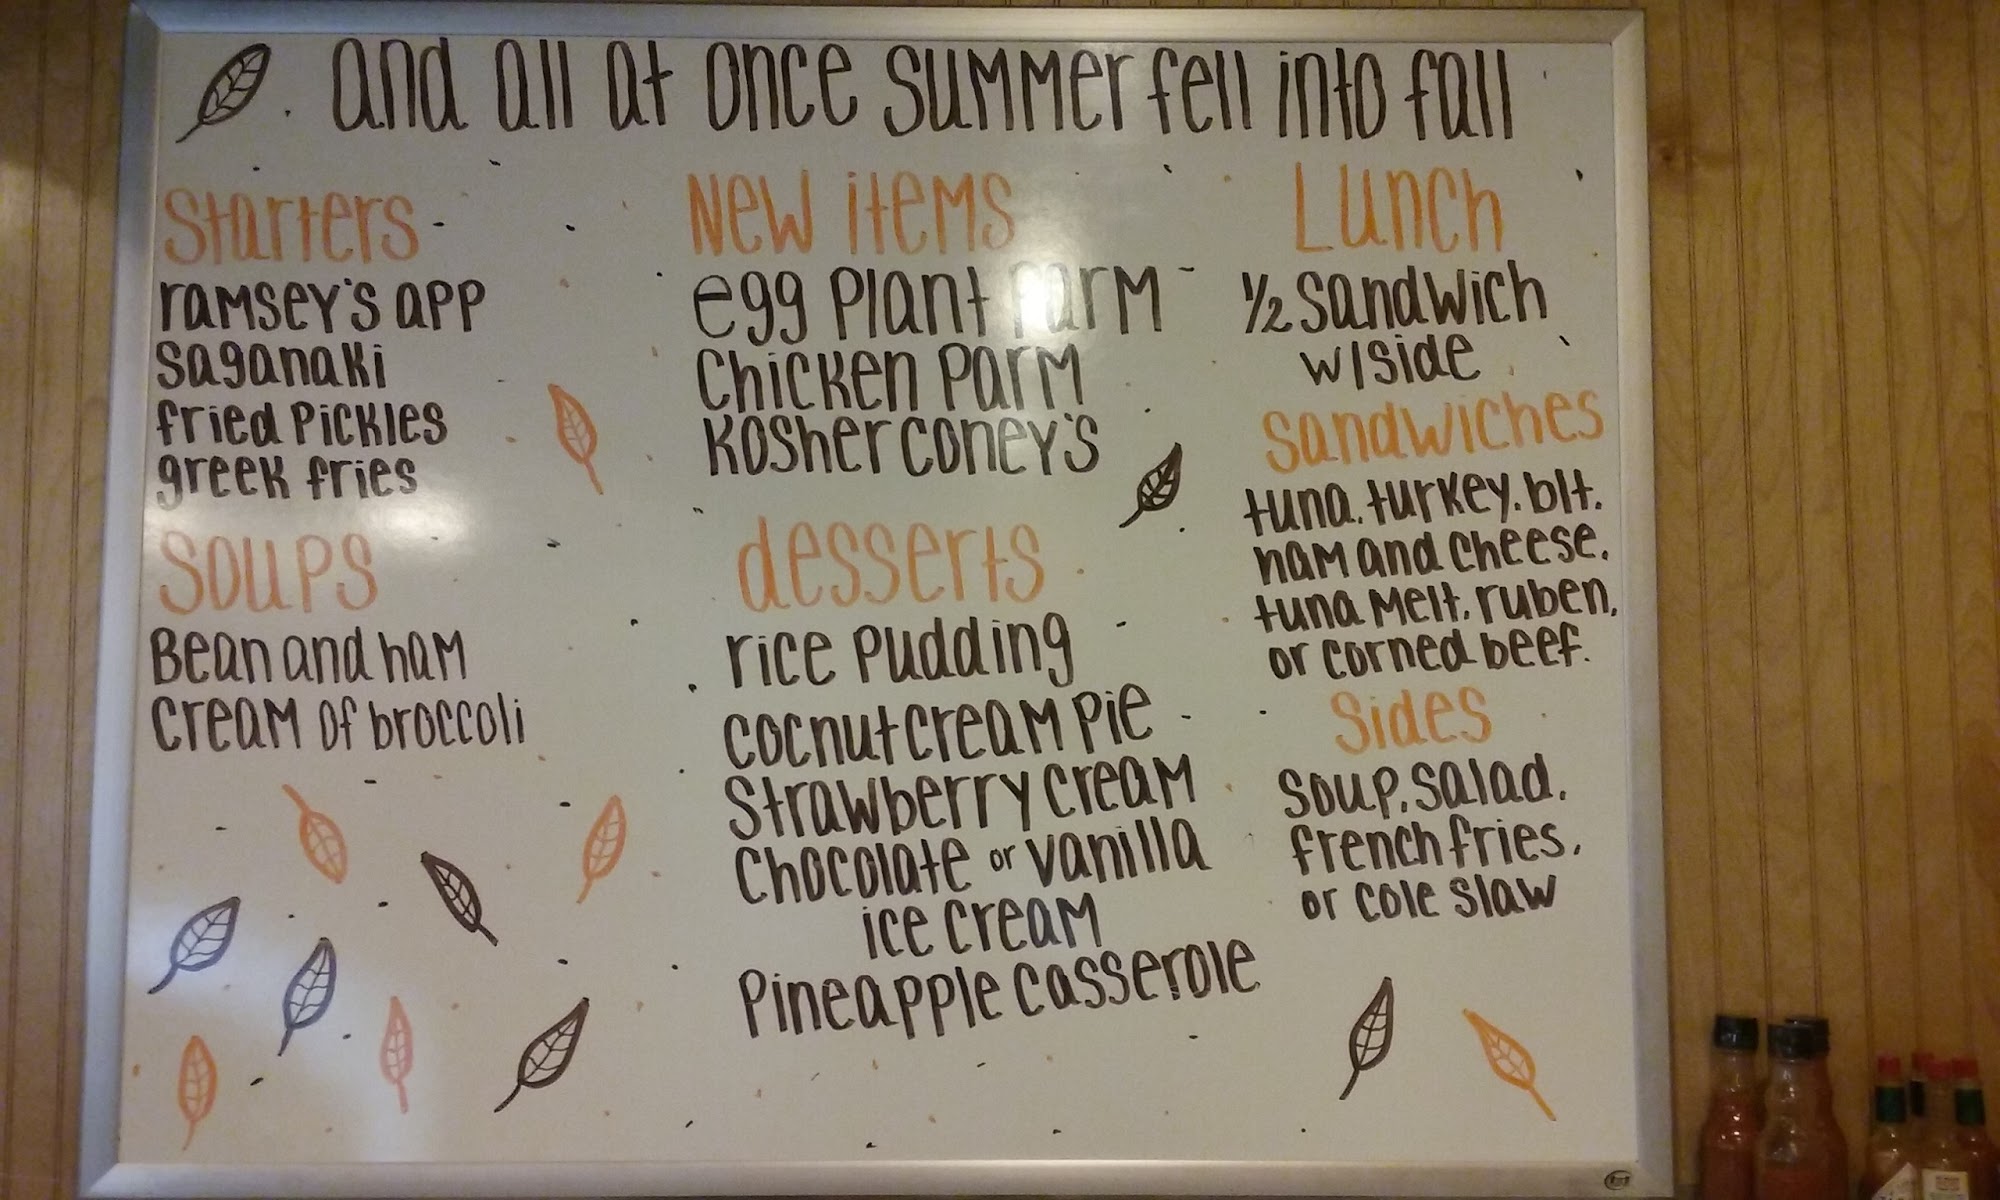 and all at once summer fell into fall
Starters
ramsey's app
saganaki
fried pickles
greek fries
Soups
Bean and ham
cream of broccoli
New items
egg plant parm
chicken parm
kosher coney's
desserts
rice pudding
cocnut cream pie
strawberry cream
chocolate or vanilla
ice cream
pineapple casserole
Lunch
1/2 sandwich
w/side
sandwiches
tuna, turkey, blt,
ham and cheese,
tuna melt, ruben,
or corned beef.
Sides
soup, salad,
french fries,
or cole slaw